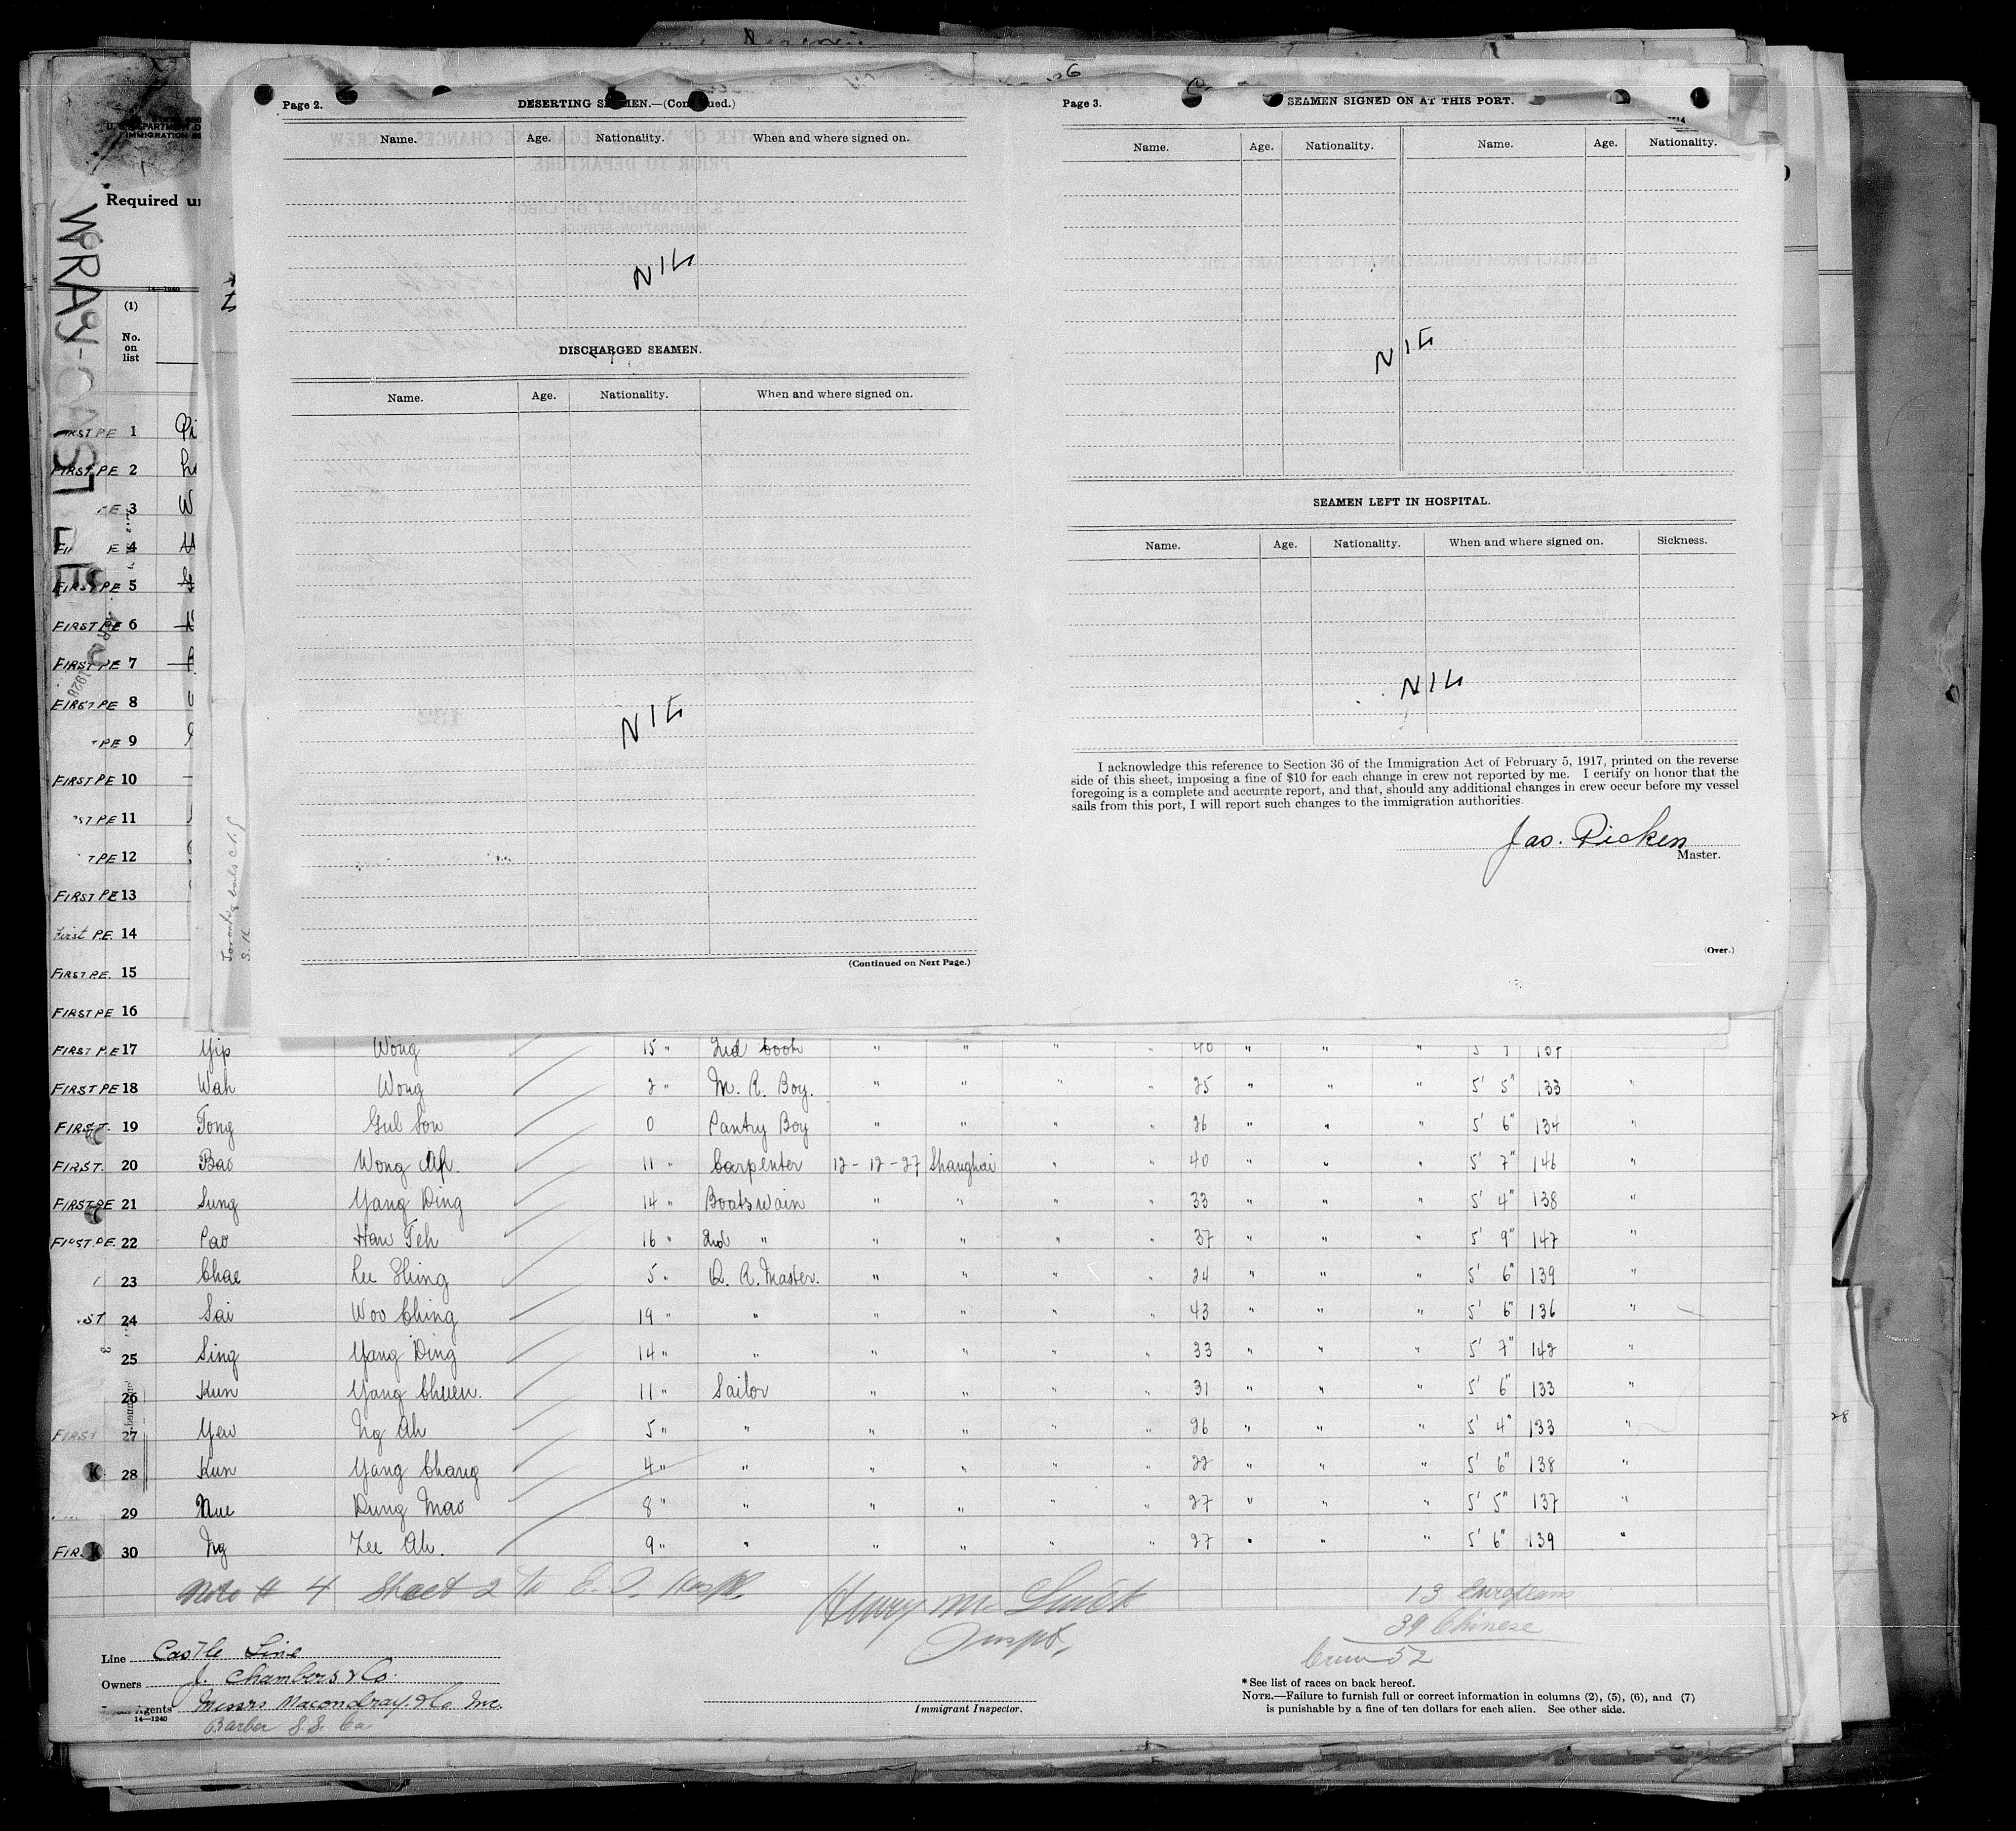 Page 2.
DESERTING SEAMEN.—(Continued.)
Name. Age. Nationality. When and where signed on.
NIL
DISCHARGED SEAMEN.
Name. Age. Nationality. When and where signed on.
NIL
(Continued on Next Page.)
Page 3.
SEAMEN SIGNED ON AT THIS PORT.
Name. Age. Nationality. Name. Age. Nationality.
NIL
SEAMEN LEFT IN HOSPITAL.
Name. Age. Nationality. When and where signed on. Sickness.
NIL
I acknowledge this reference to Section 36 of the Immigration Act of February 5, 1917, printed on the reverse
side of this sheet, imposing a fine of $10 for each change in crew not reported by me. I certify on honor that the
foregoing is a complete and accurate report, and that, should any additional changes in crew occur before my vessel
sails from this port, I will report such changes to the immigration authorities.
Jas. Picken
Master.
(Over.)
Required
WRAY-CASTLE
14—1240
(1)
No.
on
list
1
FIRST PE 2
3
4
FIRST PE 5
FIRST PE 6
FIRST PE 7
FIRST PE 8
9
FIRST PE 10
11
12
FIRST PE 13
First P.E. 14
FIRST P.E. 15
FIRST PE 16
FIRST PE 17 Yip Wong 15 " 2nd Cook " " " " 40 " " " 5' 7"
FIRST PE 18 Wah Wong 2 " M. R. Boy. " " " " 25 " " " 5' 5" 133 "
FIRST. 19 Tong Gul Son 0 Pantry Boy " " " " 26 " " " 5' 6" 134 "
FIRST. 20 Bao Wong Ah. 11 " Carpenter 12-12-27 Shanghai " " 40 " " " 5' 7" 146 "
FIRST PE 21 Sung Yang Ding 14 " Boatswain " " " " 33 " " " 5' 4" 138 "
FIRST.PE. 22 Pao Han Teh 16 " 2nd " " " " " 37 " " " 5' 9" 147 "
23 Chae Lee Shing 5 " Q. R. Master. " " " " 24 " " " 5' 6" 139 "
ST 24 Sai Woo Ching 19 " " " " " " 43 " " " 5' 6" 136 "
25 Sing Yang Ding 14 " " " " " " 33 " " " 5' 7" 142 "
26 Kun Yang Chuen. 11 " Sailor " " " " 31 " " " 5' 6" 133 "
FIRST 27 Yew Ng Ah 5 " " " " " " 26 " " " 5' 4" 133 "
28 Kun Yang Chang 4 " " " " " " 22 " " " 5' 6" 138 "
29 Nue Dung Mao 8 " " " " " " 27 " " " 5' 5" 137 "
30 Ng Zee Ah. 9 " " " " " " 27 " " " 5' 6" 139 "
Note # 4 Sheet 2 to
Henry
Inspt.
13 Europeans
39 Chinese
Crew 52
Line Castle Line
Owners J. Chambers & Co.
Agents Messrs Macondray & Co Inc.
14—1240
Barber S.S. Co
Immigrant Inspector.
*See list of races on back hereof.
NOTE.—Failure to furnish full or correct information in columns (2), (5), (6), and (7)
is punishable by a fine of ten dollars for each alien. See other side.